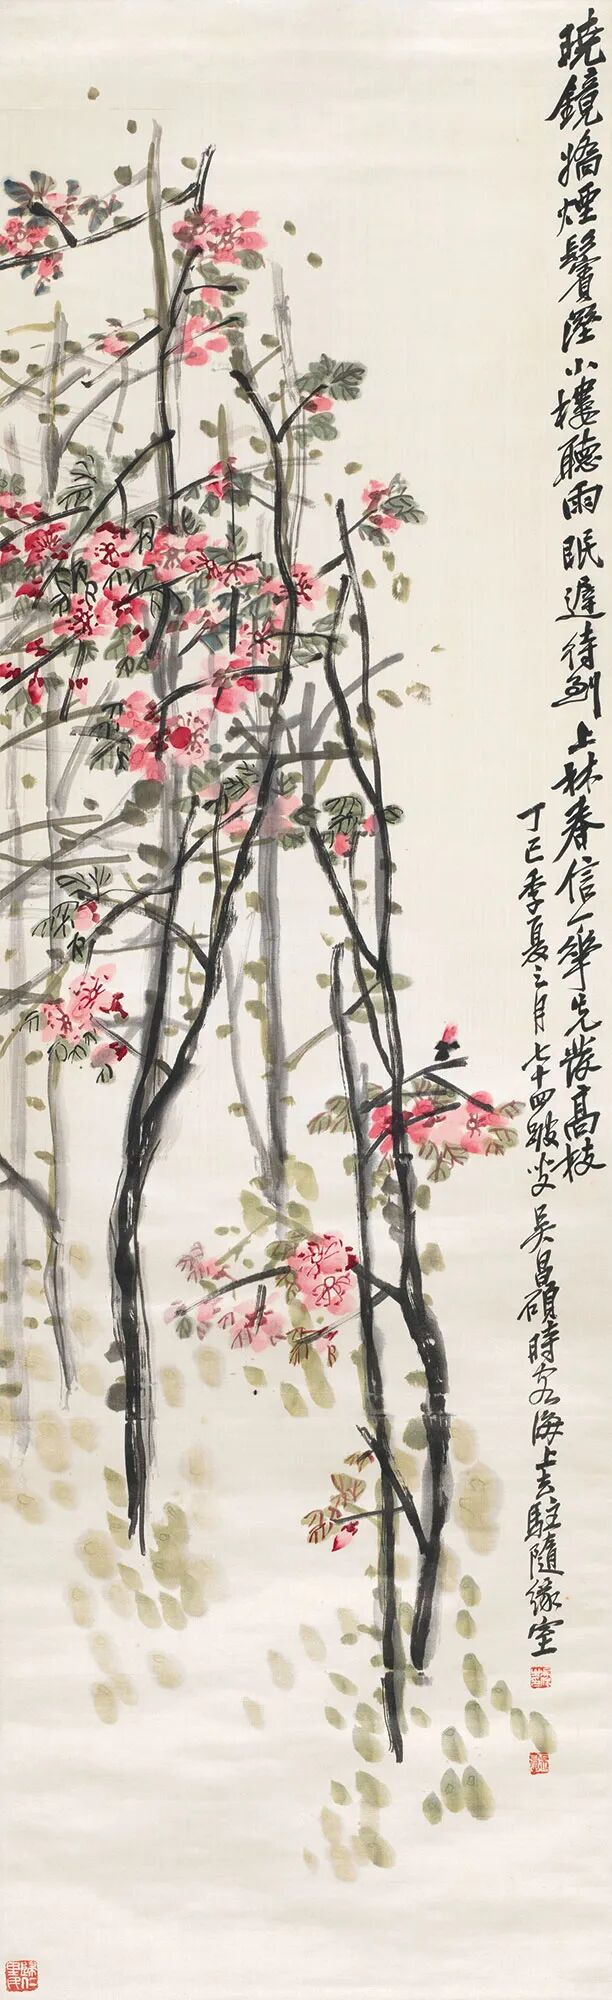 曉鏡嬌煙鬢溼小樓聽雨眠遲待到上林春信一華先發高枝
丁巳季夏之月七十四跛叟吳昌碩時客海上去駐隨緣室
歸仁里民